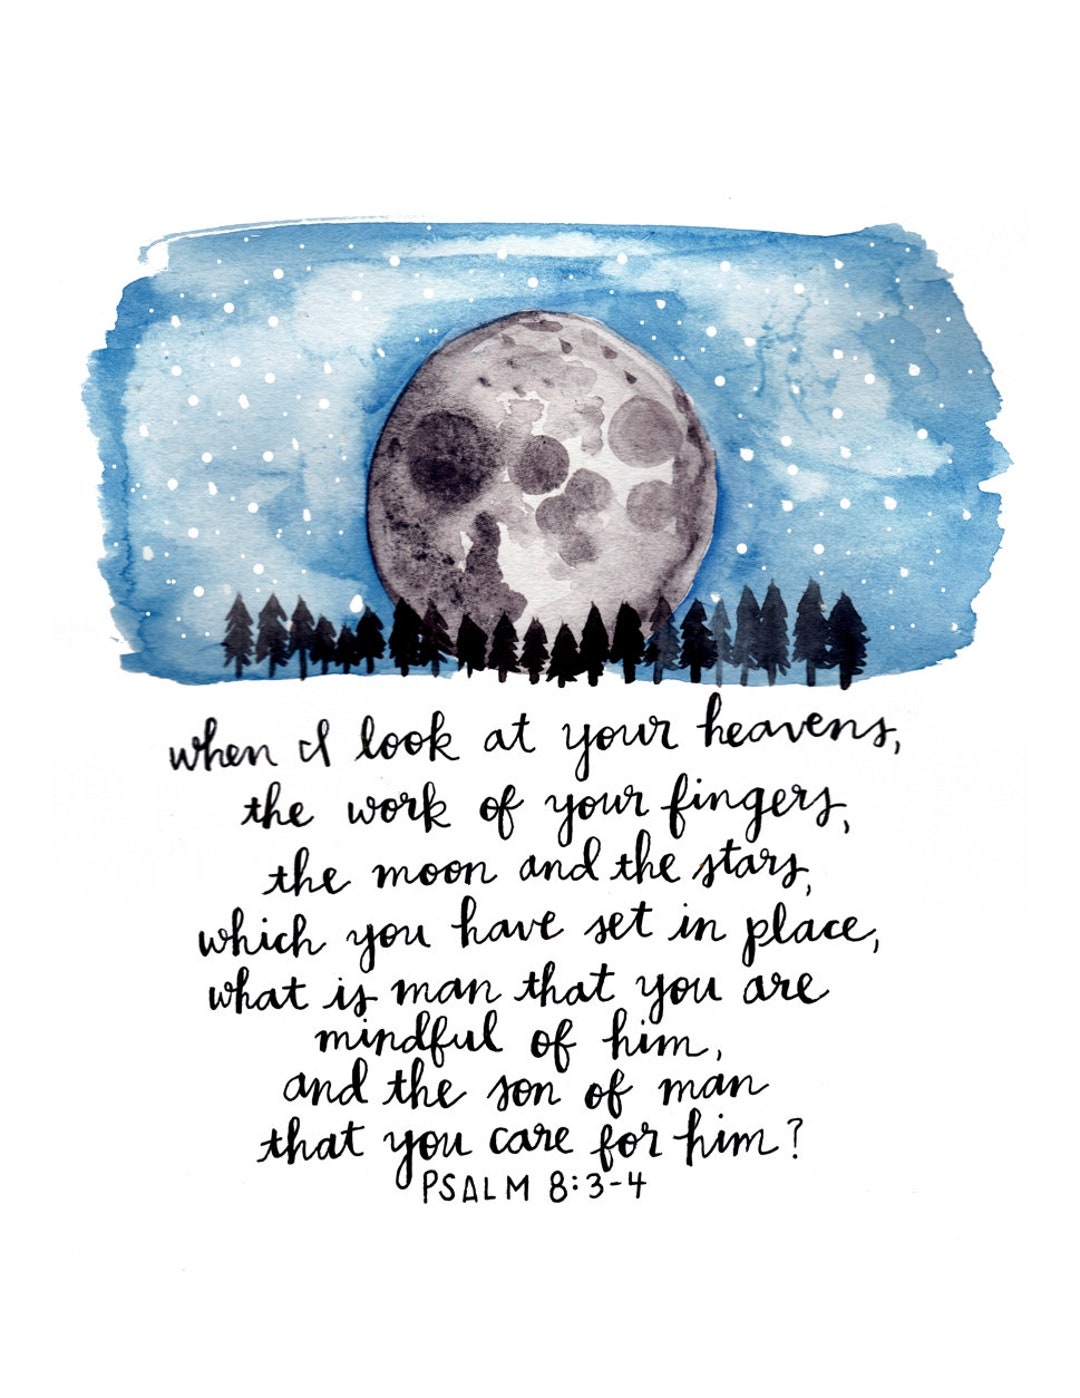 when I look at your heavens,
the work of your fingers,
the moon and the stars,
which you have set in place,
what is man that you are
mindful of him,
and the son of man
that you care for him?
PSALM 8:3-4